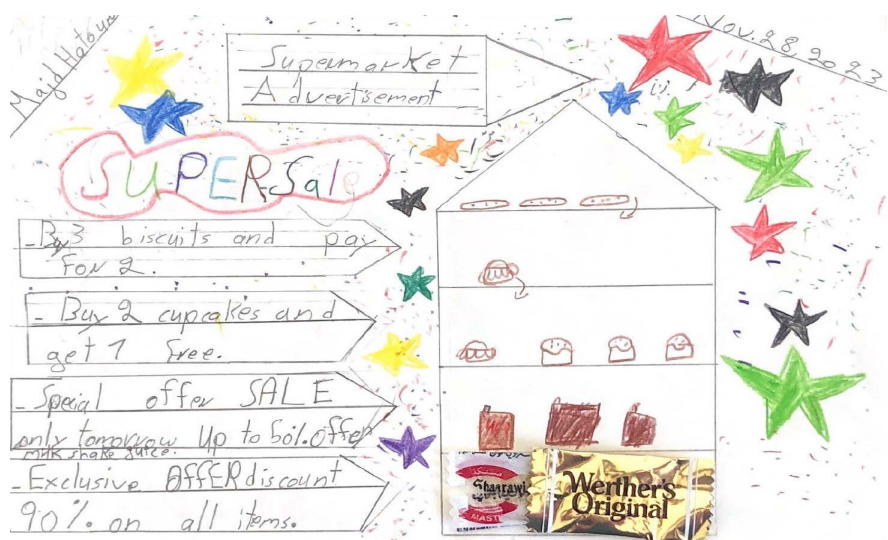 Majd Hatoum
Nov. 28 2023
Supermarket
Advertisement
SUPER Sale
- Buy 3 biscuits and pay
for 2.
- Buy 2 cupcakes and
get 1 free.
- Special offer SALE
only tomorrow Up to 50%. offer
milk shake juice.
- Exclusive OFFER discount
90%. on all items.
Shaarawi
MASTI
Werther's
Original